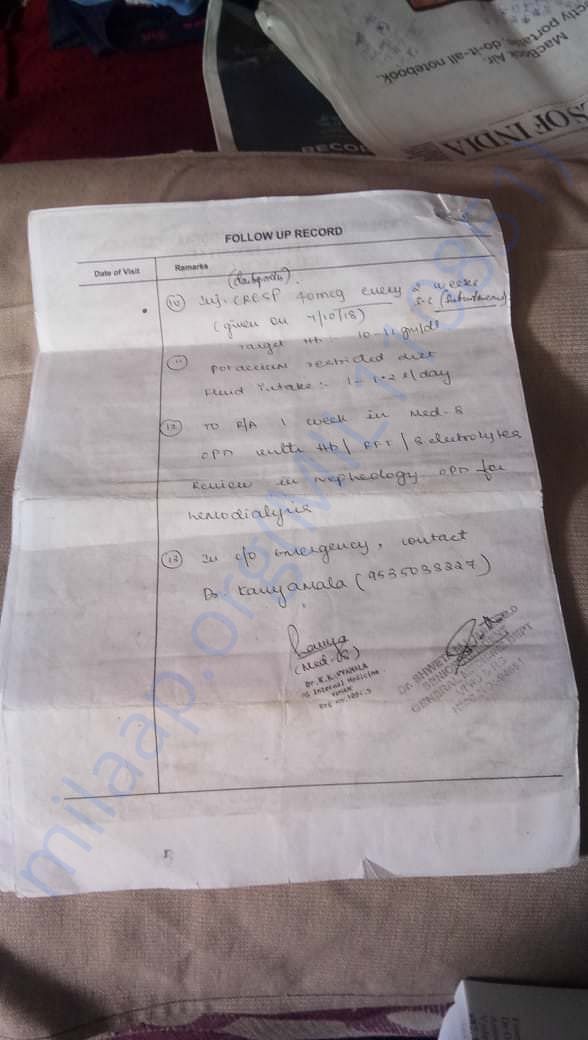 MacBook Air.
do-it-all notebook.
S OF INDIA
RECO
FOLLOW UP RECORD
Date of Visit
Remarks
10 Inj. CRESP 40mcg every 2 weeks
S.C
(given on 7/10/18)
Target Hb :- 10-11 gm/dl
11 potassium restricted diet
Fluid intake :- 1-1.2 l/day
12 TO R/A 1 week in Med-8
OPD with Hb / RFT / S. electrolytes
Review in nephrology OPD for
hemodialysis
13 In c/o emergency, contact
Dr. Kavyamala (9535033327)
(Med-
Internal Medicine
milaap.org/MIL